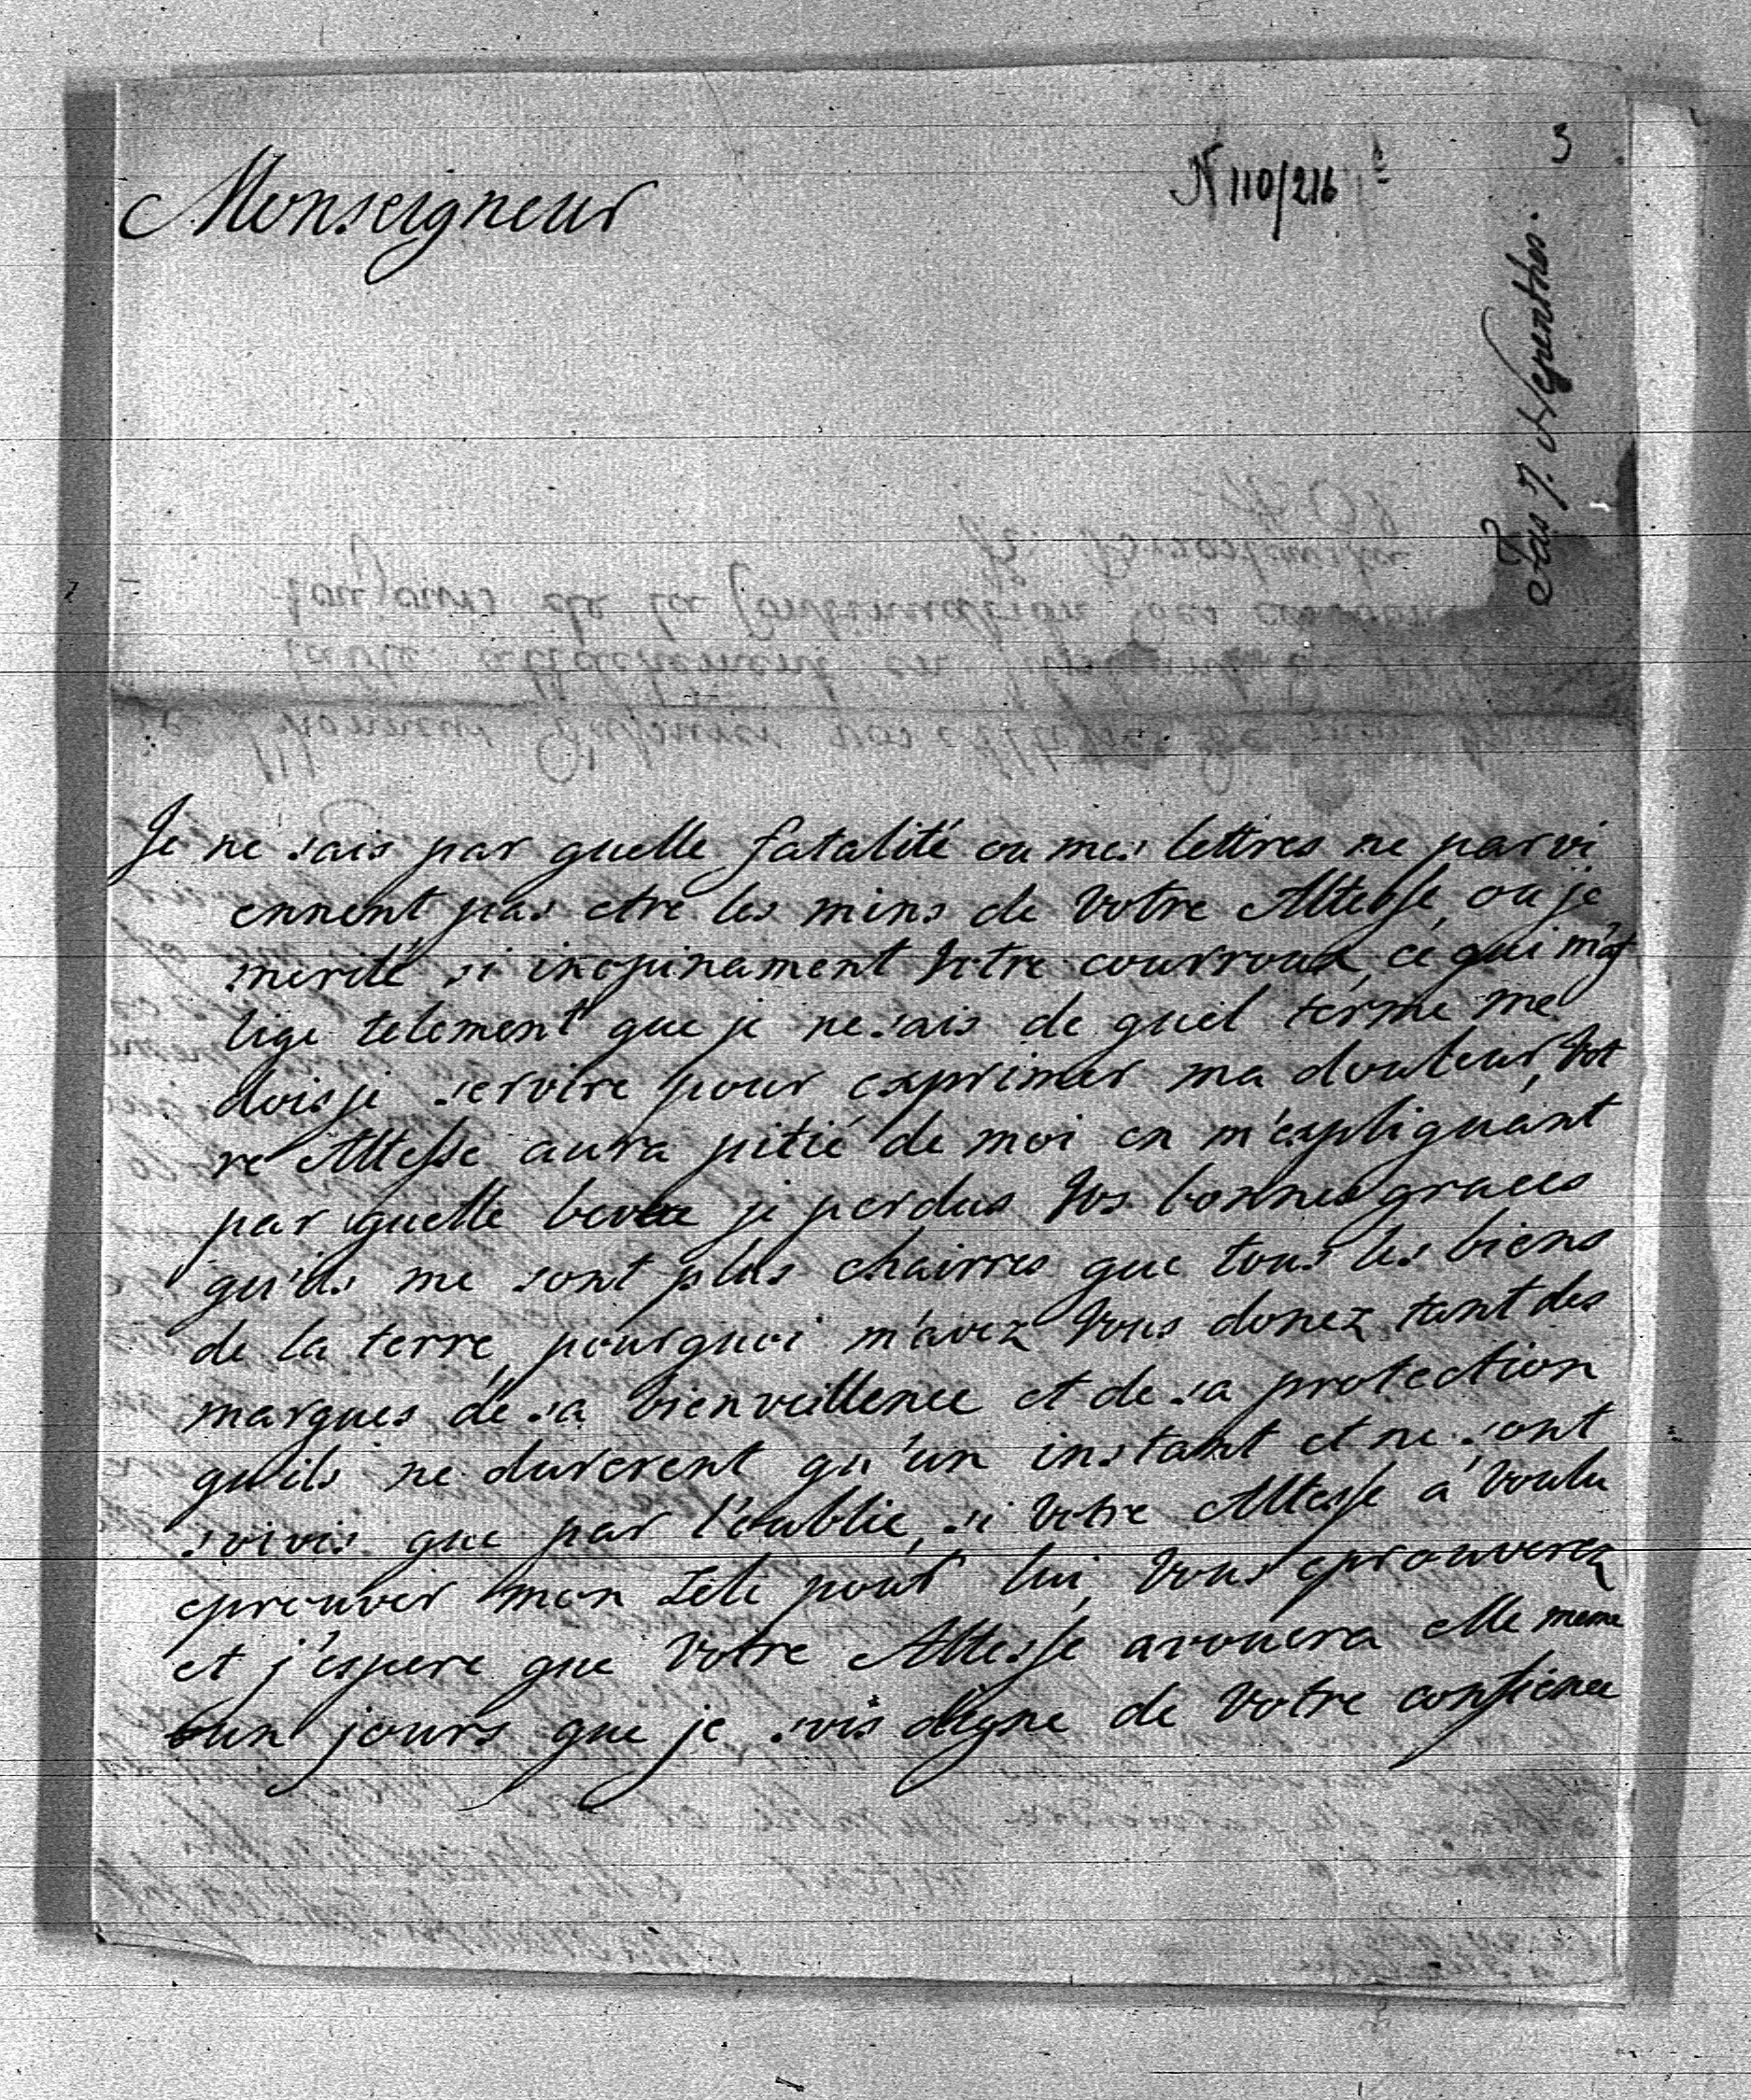 3
N 110/216
Monseigneur
Nepenthes.
Je ne sais par quelle fatalité ou mes lettres ne parvi
ennent pas etre les mins de Votre Altesse, ou je
merité si inopinament Votre courroux, ce qui m'af
lige telement que je ne sais de quel terme me
dois je servire pour exprimer ma douleur, Vot
re Altesse aura pitié de moi en m'expliquant
par quelle bevue je perdus Vos bonnes graces
qu'ils me sont plus chairres que tous les biens
de la terre, pourquoi m'avez Vous donez tant des
marques de sa bienveillence et de sa protection
qu'ils ne durerent qu'un instant et ne sont
soivis que par l'oublie, si Votre Altesse a voulu
eprouver mon zele pour lui, Vous eprouverez
et j'espere que Votre Altesse avouera elle meme
un jours que je sois digne de Votre confience